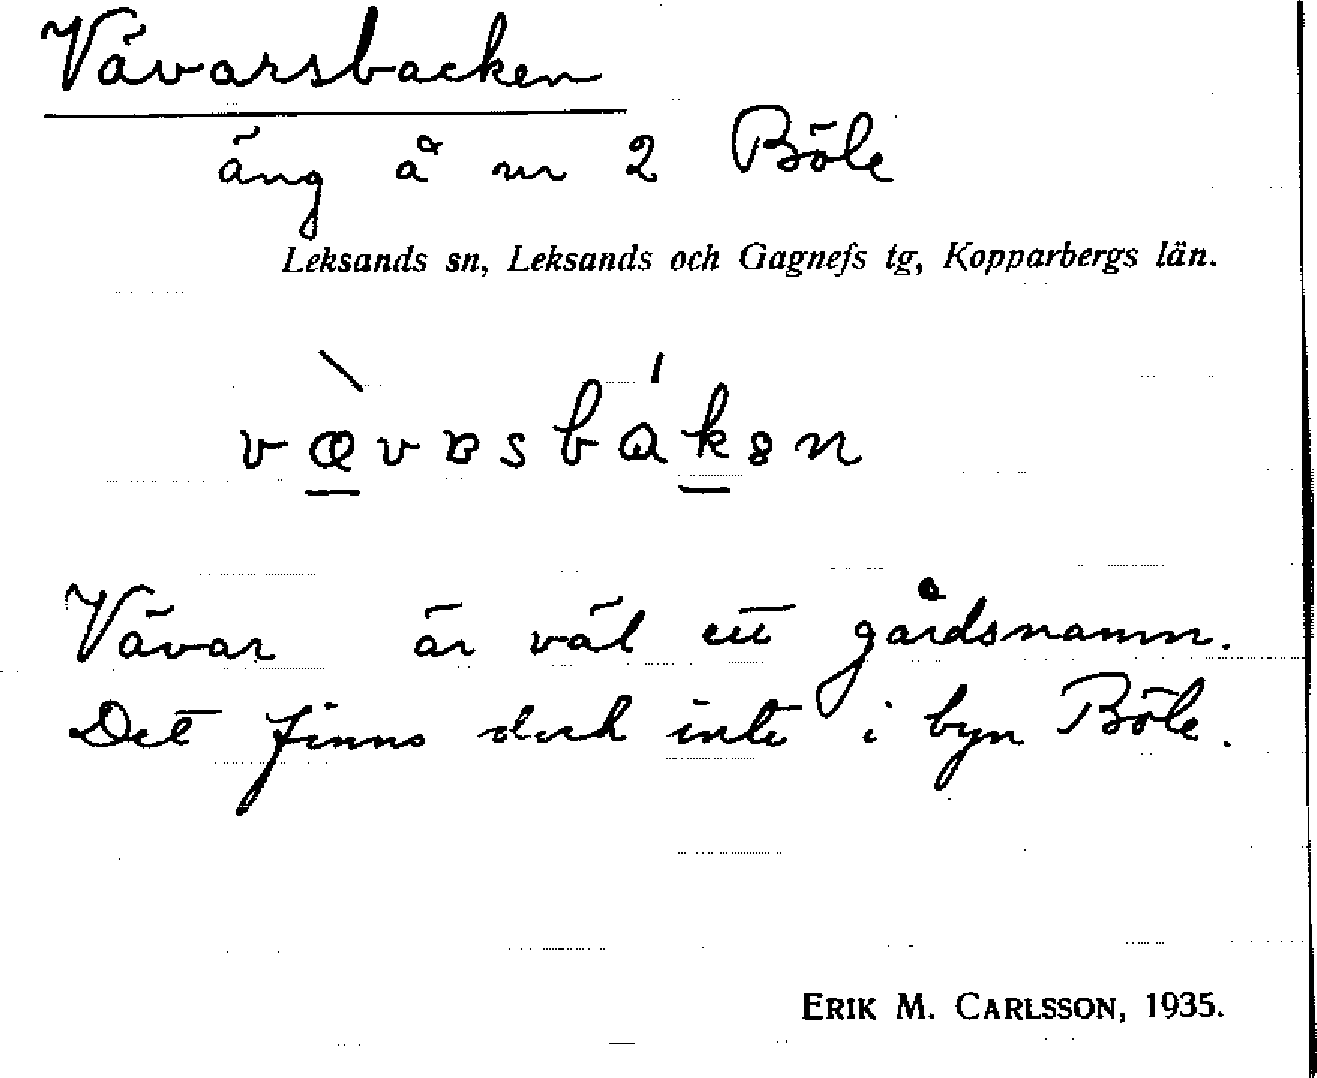 Vävarsbacken
äng å nr 2 Böle
Leksands sn, Leksands och Gagnefs tg, Kopparbergs län.
Vävar är väl ett gårdsnamn.
Det finns dock inte i byn Böle.
ERIK M. CARLSSON, 1935.